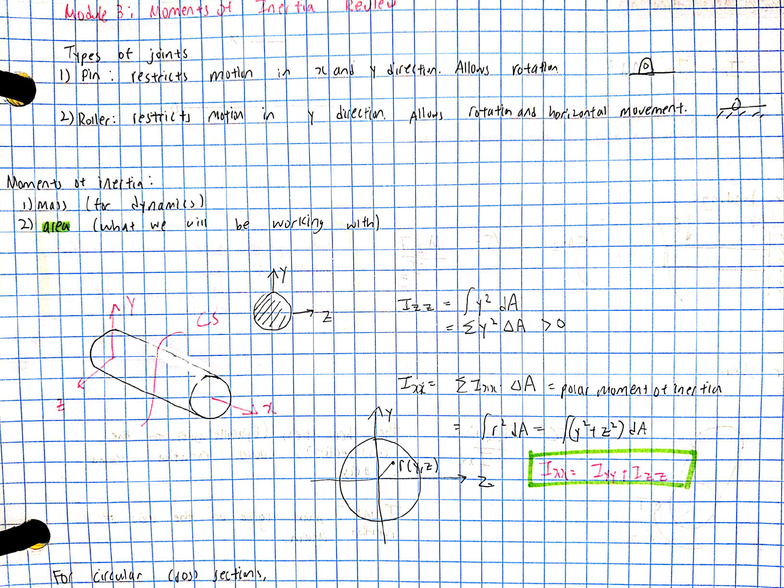 Module 3: Moments of Inertia Review
Types of joints
1) Pin: restricts motion in x and y direction. Allows rotation
2) Roller: restricts motion in y direction. Allows rotation and horizontal movement.
Moments of inertia:
1) mass (for dynamics)
2) area (what we will be working with)
Y
Z
Y
CS
Z
x
Izz = ∫y² dA
= Σy² ΔA >0
Ixx = Σ Ixx · ΔA = polar moment of inertia
= ∫r² dA = ∫(y²+z²) dA
Y
r(y,z)
Z
Ixx = Iyy + Izz
For circular cross sections,